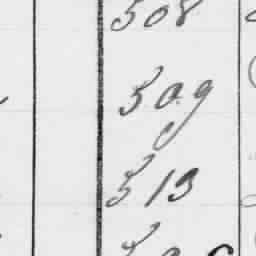 508
509
513